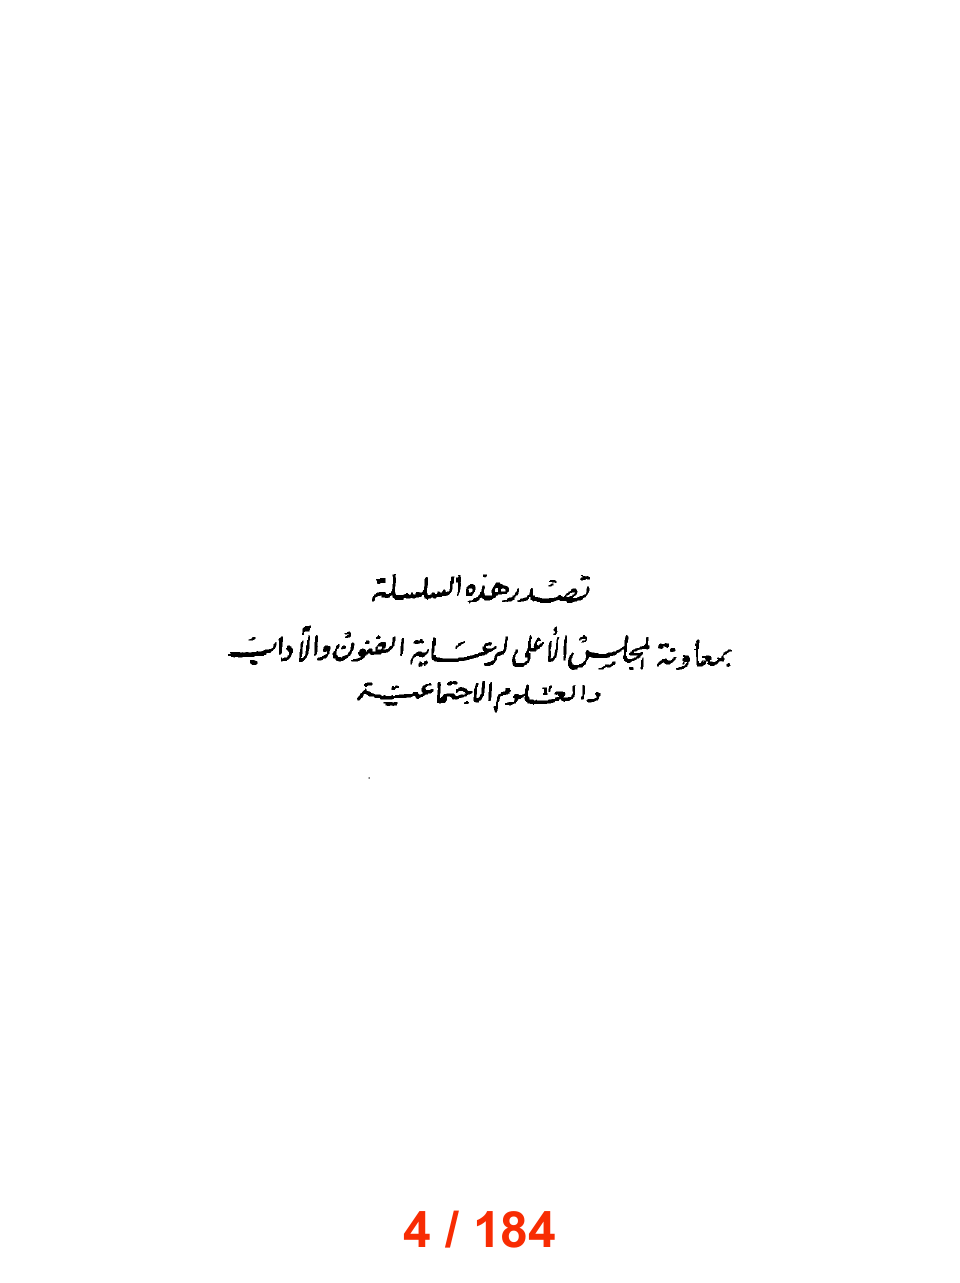 تصدر هذه السلسلة
بمعاونة المجلس الأعلى لرعاية الفنون والآداب
والعلوم الاجتماعية
4 / 184